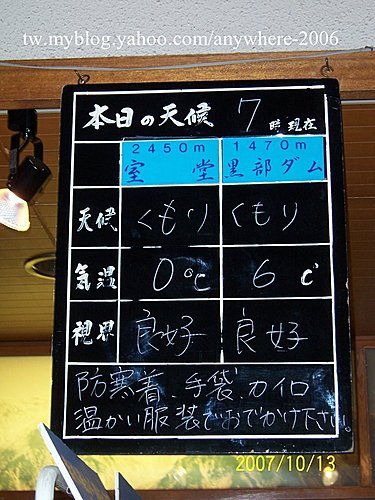 tw.myblog.yahoo.com/anywhere-2006
本日の天候 7時現在
2450m 1470m
室堂 黒部ダム
天候 くもり くもり
気温 0℃ 6℃
視界 良好 良好
防寒着、手袋、カイロ
温かい服装でおでかけ下さい。
2007/10/13